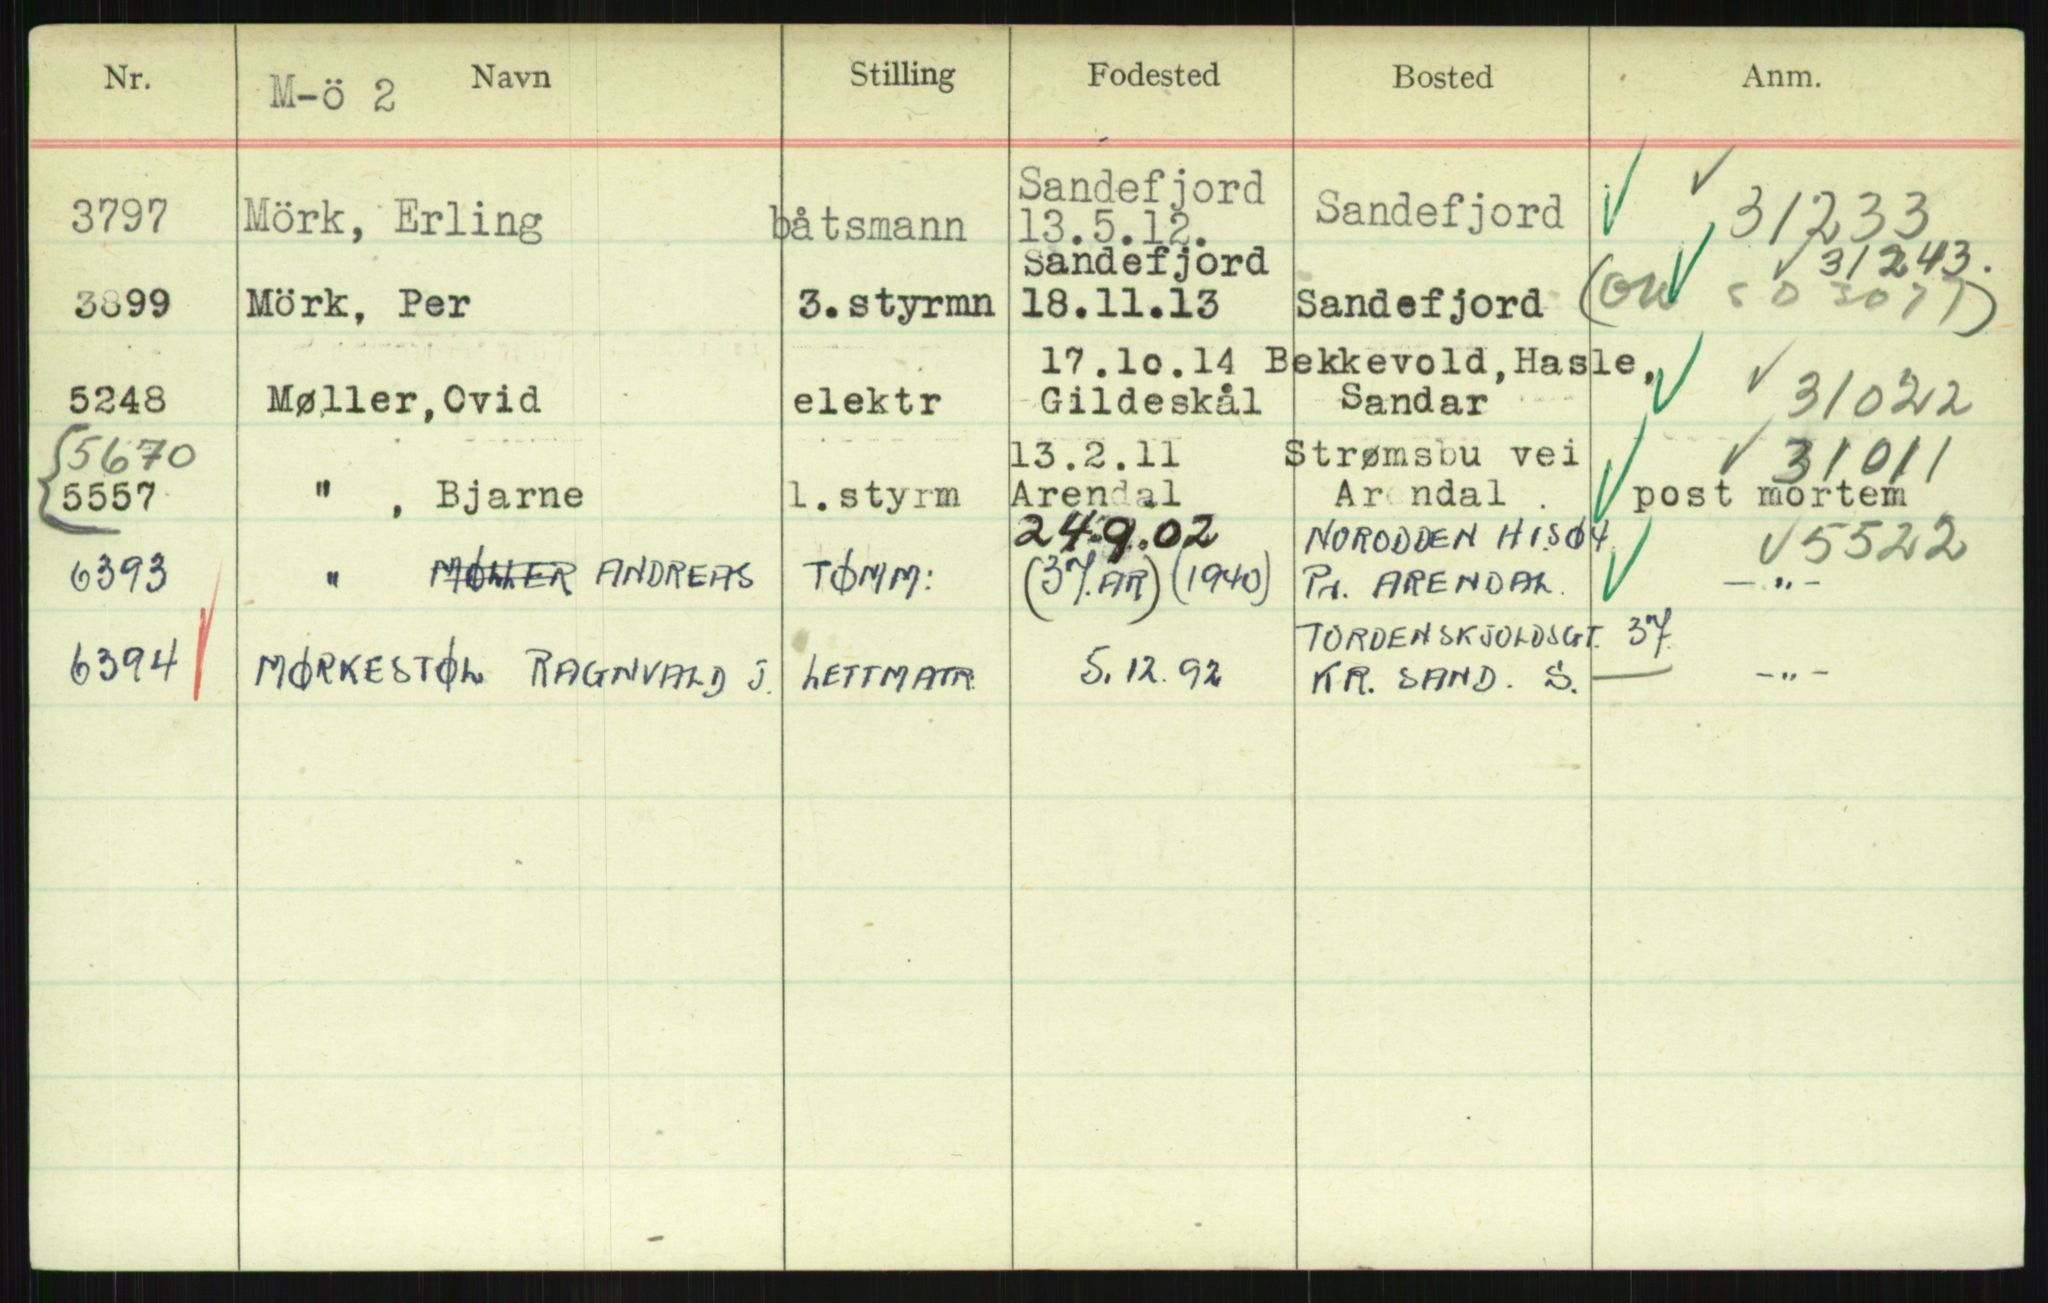 Nr. M-ö 2 Navn Stilling Fodested Bosted Anm.
Sandefjord
3797 Mörk, Erling båtsmann 13.5.12. Sandefjord ✓ ✓ 31233
Sandefjord ✓ 31243.
3899 Mörk, Per 3.styrmn 18.11.13 Sandefjord ✓
17.10.14 Bekkevold,Hasle,
5248 Møller,Ovid elektr Gildeskål Sandar ✓ ✓ 31022
{5670 13.2.11 Strømsbu vei ✓ 31011
5557 " , Bjarne 1.styrm Arendal Arendal . ✓ post mortem
24.9.02 NORODDEN HISØY ✓ 5522
6393 " MØLLER ANDREAS TØMM: (37.AR) (1940) Pr. ARENDAL. ✓ -"-
TORDENSKJOLDSGT. 37.
6394 MØRKESTØL RAGNVALD J. LETTMATR. 5.12.92 KR. SAND. S. — -"-